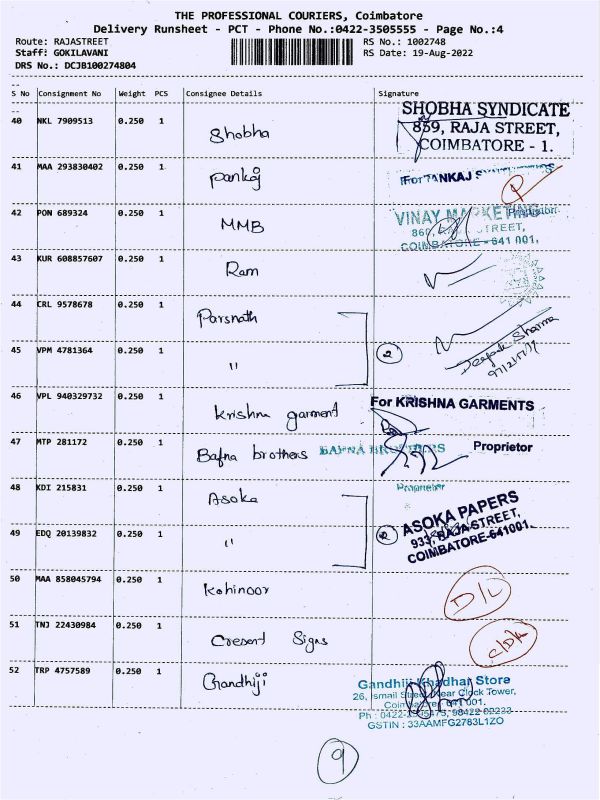 THE PROFESSIONAL COURIERS, Coimbatore
Delivery Runsheet - PCT - Phone No.:0422-3505555 - Page No.:4
Route: RAJASTREET
RS No.: 1002748
Staff: GOKILAVANI
RS Date: 19-Aug-2022
DRS No.: DCJB100274804
S No Consignment No Weight PCS Consignee Details Signature
40 NKL 7909513 0.250 1 Shobha
SHOBHA SYNDICATE
859, RAJA STREET,
COIMBATORE - 1.
41 MAA 293830402 0.250 1 Pankaj
For PANKAJ
42 PON 689324 0.250 1 MMB
VINAY MARKETING
STREET,
COIMBATORE - 641 001.
43 KUR 608857607 0.250 1 Ram
44 CRL 9578678 0.250 1 Parsnath
45 VPM 4781364 0.250 1 "
2
Deepak Sharma
46 VPL 940329732 0.250 1 Krishna garment
For KRISHNA GARMENTS
Proprietor
47 MTP 281172 0.250 1 Bafna brothers
BAFNA BROTHERS
Proprietor
48 KDI 215831 0.250 1 Asoka
49 EDQ 20139832 0.250 1 "
2
ASOKA PAPERS
933, RAJA STREET,
COIMBATORE-641001.
50 MAA 858045794 0.250 1 Kohinoor
D/L
51 TNJ 22430984 0.250 1 Cresent Signs
52 TRP 4757589 0.250 1 Gandhiji
Gandhiji Khadhar Store
26, Ismail Street, Near Clock Tower,
Coimbatore - 641 001.
GSTIN : 33AAMFG2783L1ZO
9